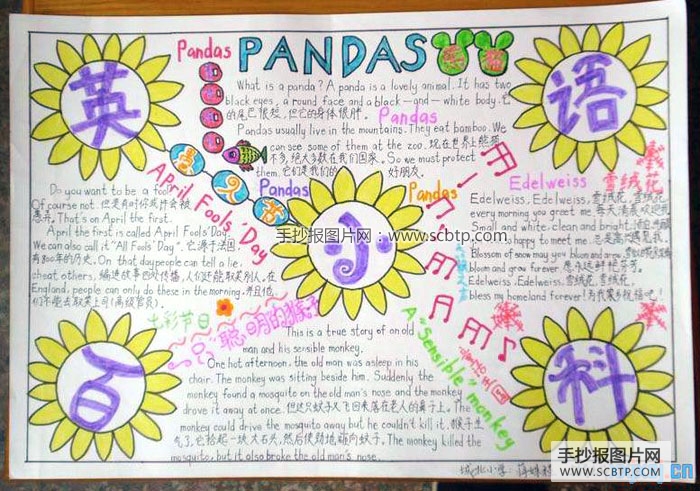 PANDAS 熊猫
Pandas
英
语
What is a panda? A panda is a lovely animal. It has two
black eyes, a round face and a black-and-white body. 它
的尾巴很短, 但它的身体很胖.
Pandas
Pandas usually live in the mountains. They eat bamboo. We
can see some of them at the zoo. 现在世界上熊猫
不多, 绝大多数在我们国家. So we must protect
them. 它们是我们的好朋友.
Pandas
Pandas
愚人节
April Fools' Day
Do you want to be a fool?
Of course not. 但是有时你或许会被
愚弄. That's on April the first.
April the first is called April Fools' Day.
We can also call it "All Fools' Day". 它源于法国,
有800年的历史. On that day people can tell a lie,
cheat others, 编造故事四处传播, 人们还能取笑别人. In
England, people can only do these in the morning, 并且他
们不能去取笑上司(高级官员).
七彩节日
小
Edelweiss 雪绒花
Edelweiss, Edelweiss, 雪绒花, 雪绒花,
every morning you greet me. 每天清晨欢迎我.
Small and white, clean and bright,
happy to meet me. 总是高兴遇见我.
Blossom of snow may you bloom and grow,
bloom and grow forever
Edelweiss, Edelweiss, 雪绒花, 雪绒花,
bless my homeland forever! 为我家乡祝福吧!
一只聪明的猴子
A "Sensible" monkey
This is a true story of an old
man and his sensible monkey.
One hot afternoon, the old man was asleep in his
chair. The monkey was sitting beside him. Suddenly the
monkey found a mosquito on the old man's nose and the monkey
drove it away at once. 但这只蚊子又飞回来落在老人的鼻子上. The monkey
could drive the mosquito away but he couldn't kill it. 猴子生
气了, 它拾起一块大石头, 然后使劲地砸向蚊子. The monkey killed the
mosquito, but it also broke the old man's nose.
百
科
城北小学
手抄报图片网:www.scbtp.com
手抄报图片网
WWW.SCBTP.COM